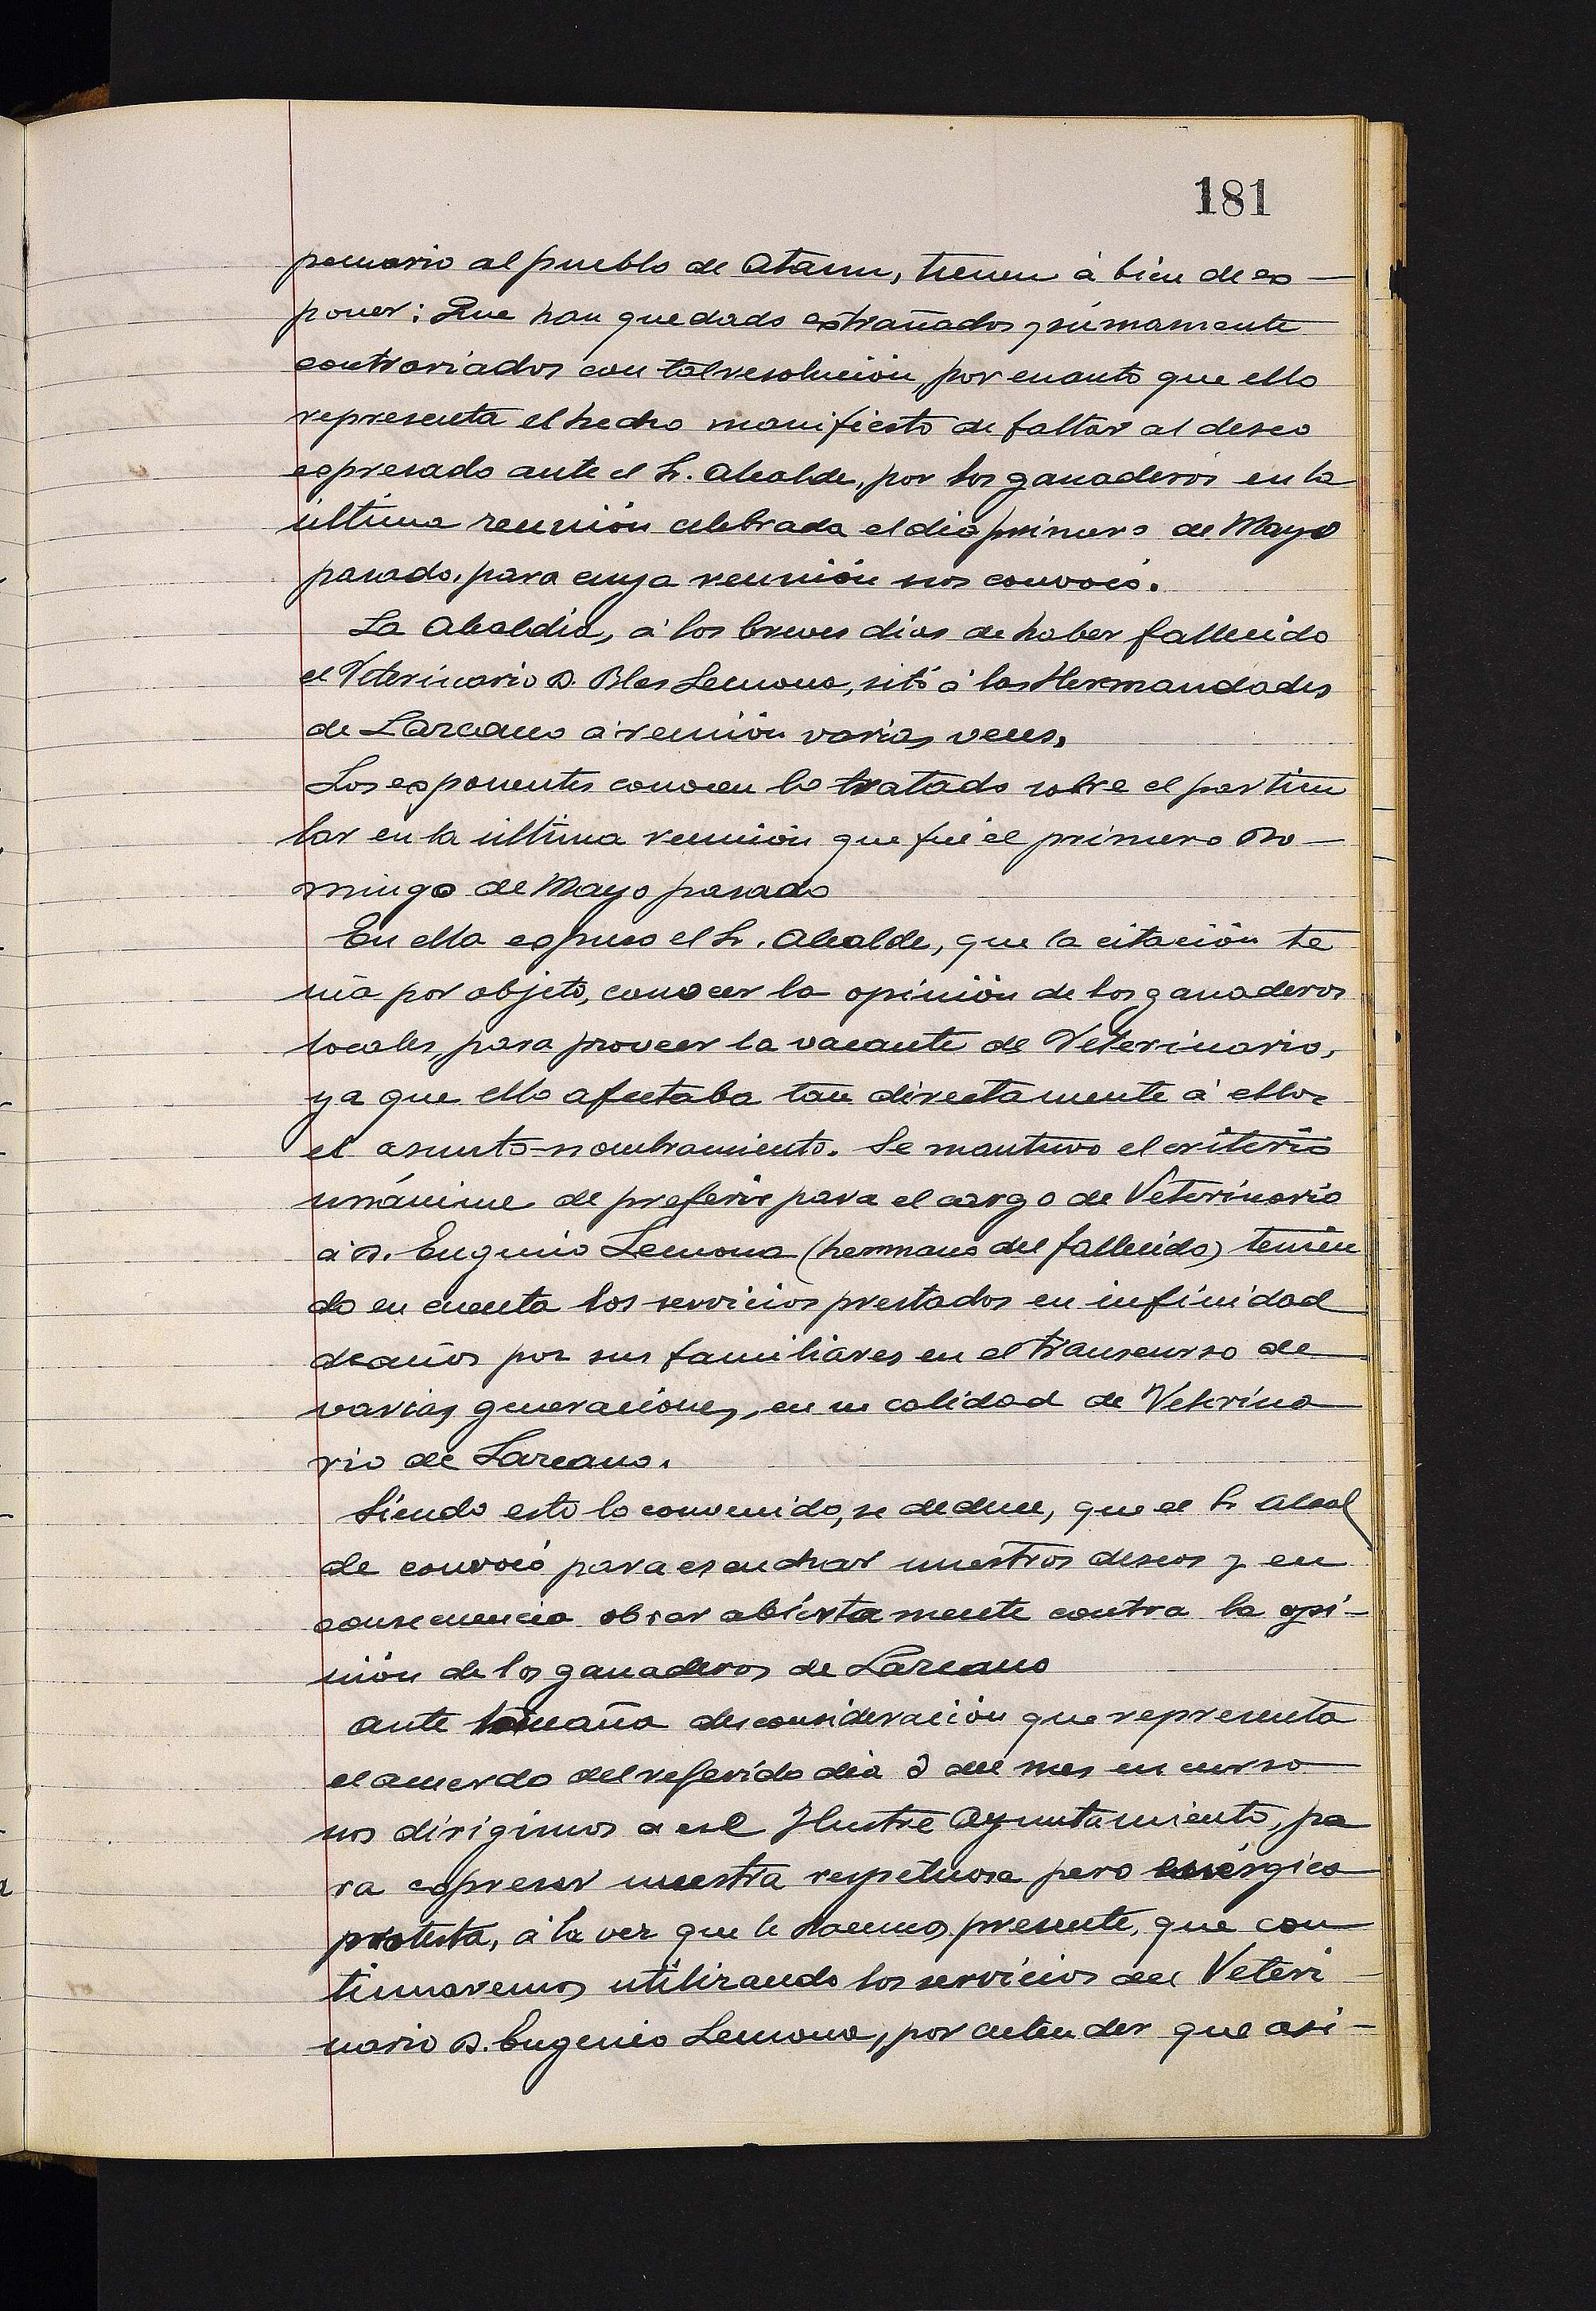 181
pecuario al pueblo de Ataun, tienen á bien de ex-
poner: Que han quedado extrañados y súmamente
contrariados con tal resolución, por cuanto que ello
representa el hecho manifiesto de faltar al deseo
expresado ante el Sr. Alcalde, por los ganaderos en la
última reunión celebrada el dia primero de Mayo
pasado, para cuya reunión nos convocó.
La Alcaldia, á los breves dias de haber fallecido
el Veterinario D. Blas Lecuona, citó á las Hermandades
de Lazcano á reunión varias veces.
Los exponentes conocen lo tratado sobre el particu
lar en la última reunión que fué el primero Do-
mingo de Mayo pasado
En ella expuso el Sr. Alcalde, que la citación te
nia por objeto, conocer la opinión de los ganaderos
locales, para proveer la vacante de Veterinario,
ya que ello afectaba tan directamente á ellos
el asunto-nombramiento. Se mantuvo el criterio
unánime de preferir para el cargo de Veterinario
á D. Eugenio Lecuona (hermano del fallecido) tenien
do en cuenta los servicios prestados en infinidad
de años por sus familiares en el transcurso de
varias generaciones, en su calidad de Veterina
rio de Lazcano.
Siendo esto lo convenido, se deduce, que el Sr Alcal
de convocó para escuchar nuestros deseos y en
consecuencia obrar abiertamente contra la opi-
nión de los ganaderos de Lazcano
Ante tamaña desconsideración que representa
el acuerdo del referido dia 3 del mes en curso
nos dirigimos a ese Ilustre Ayuntamiento, pa
ra expresar nuestra respetuosa pero enérgica
protesta, á la vez que le hacemos presente, que con
tinuaremos utilizando los servicios del Veteri-
nario D. Eugenio Lecuona, por entender que asi-